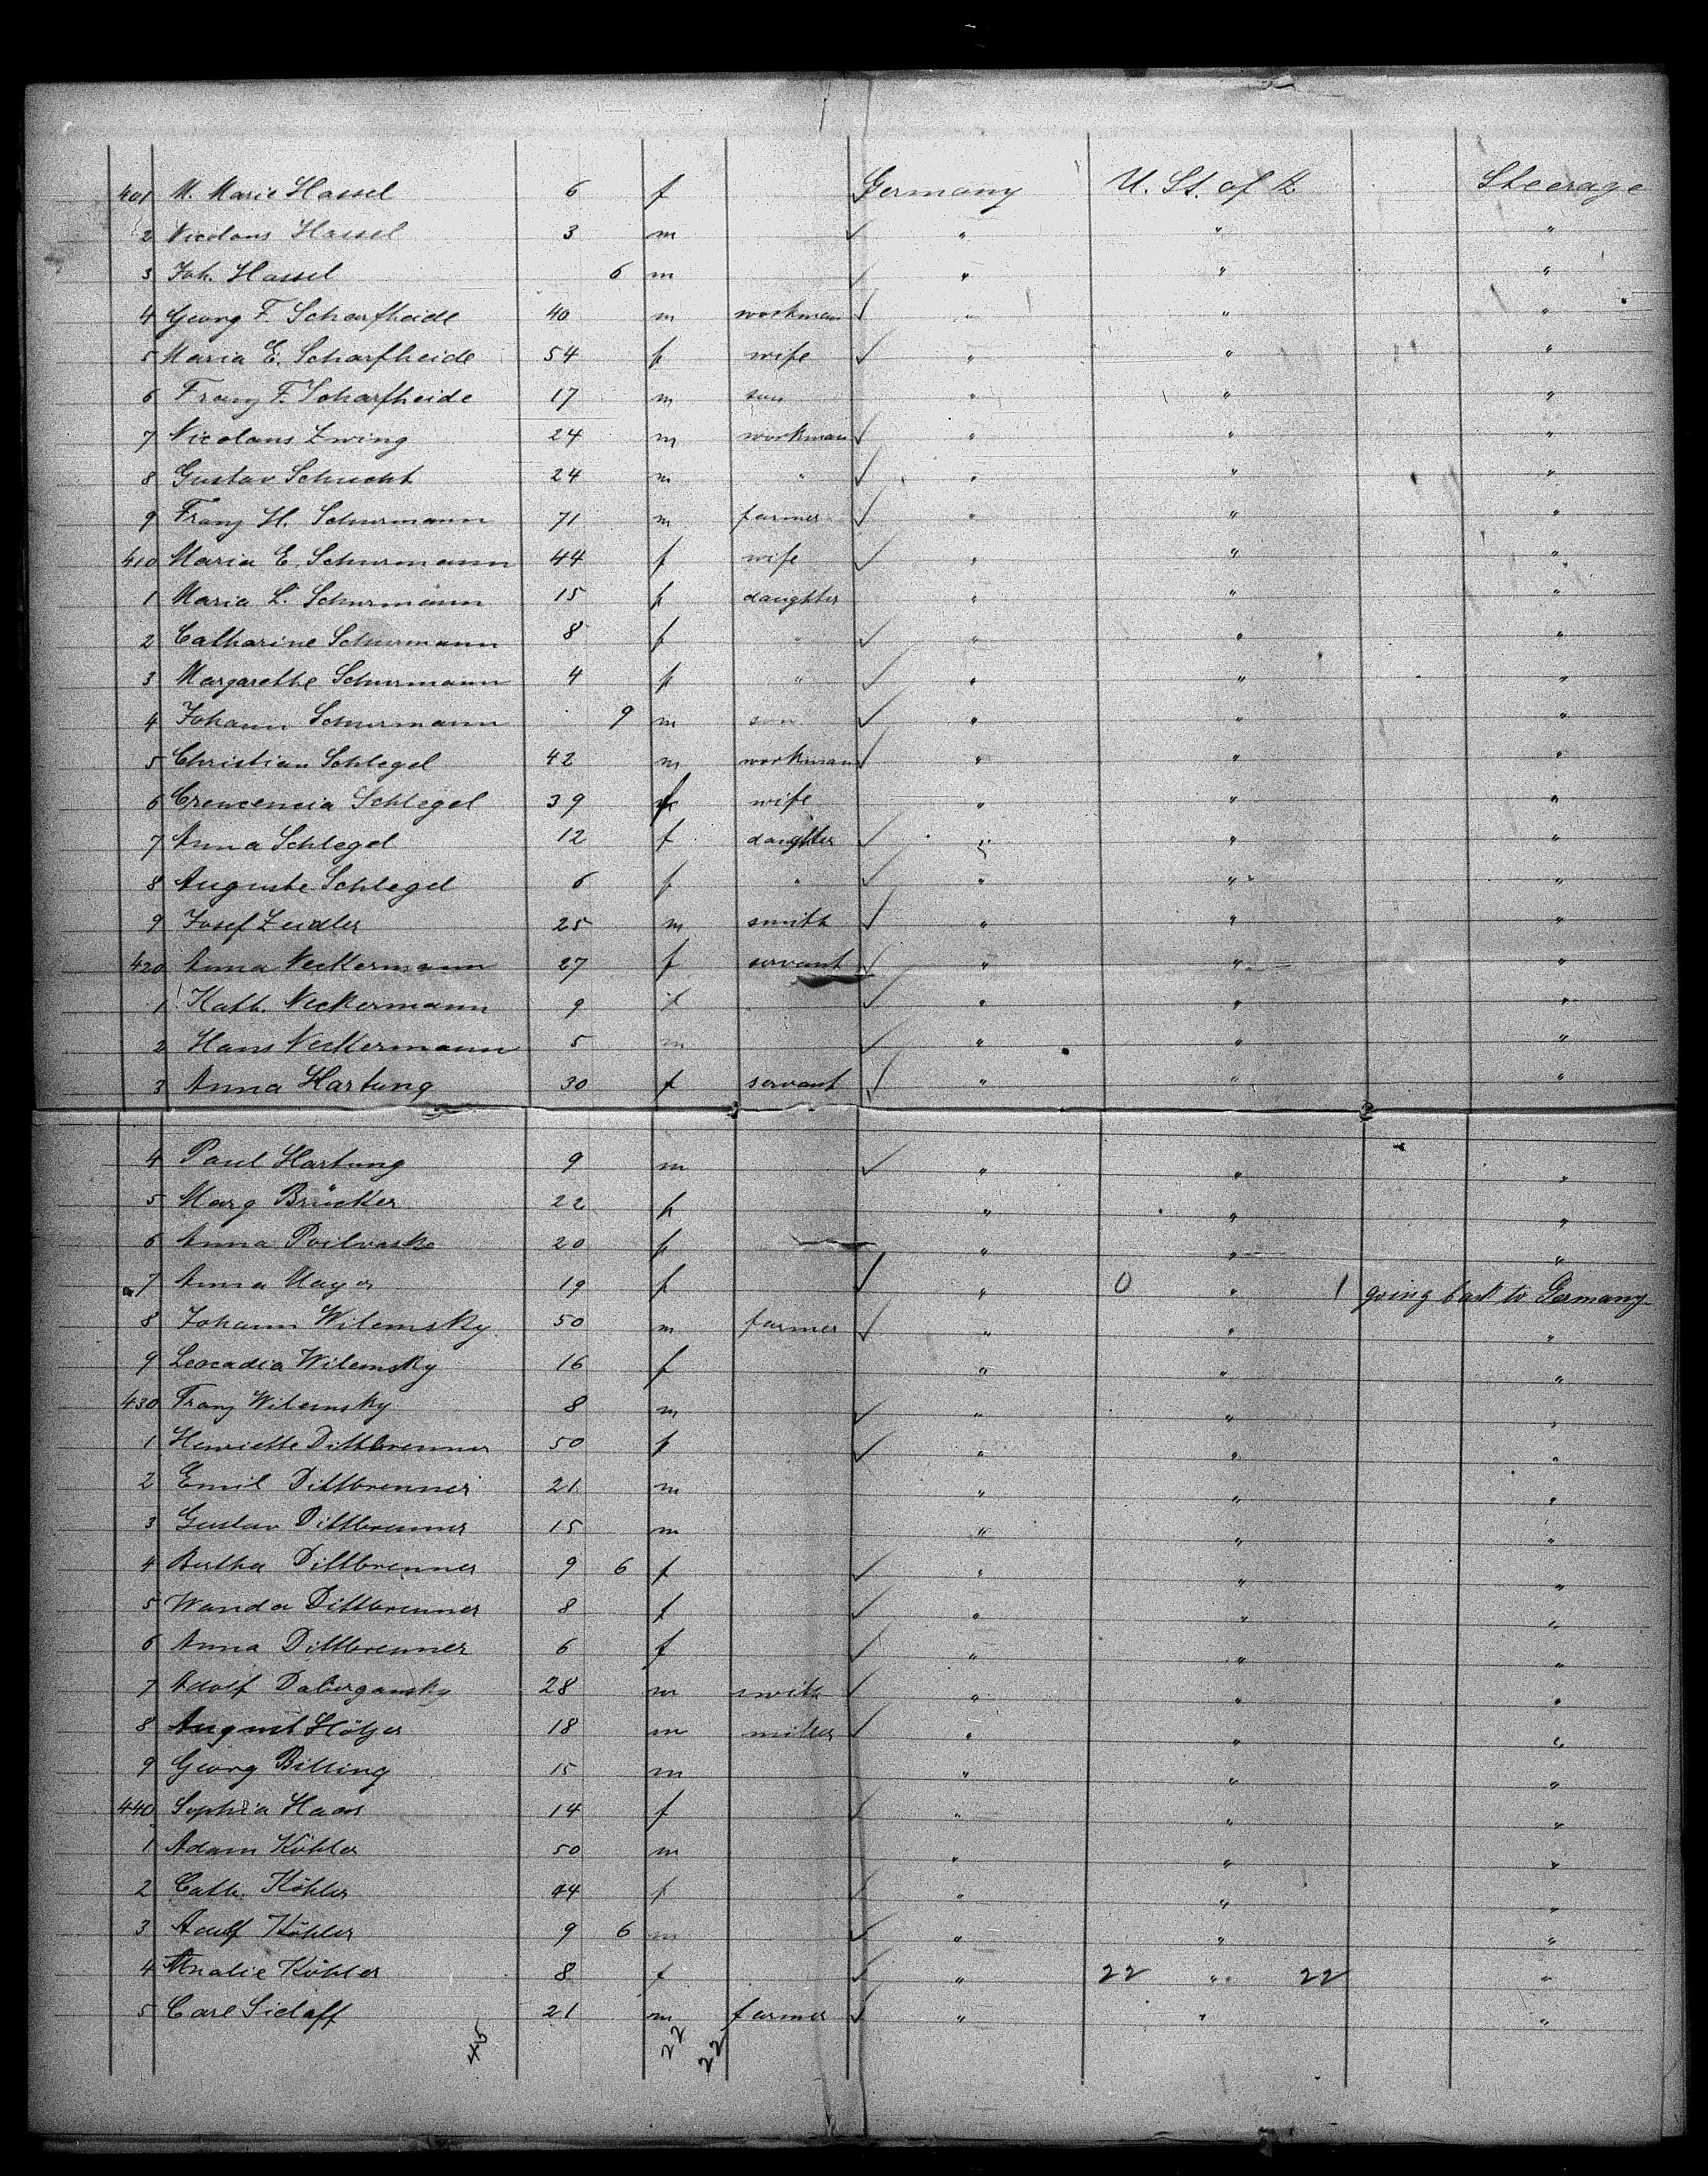 401 M. Marie Hassel 6 f Germany U. St. of A. Steerage
2 Nicolaus Hassel 3 m ✓ " " "
3 Joh. Hassel 6 m ✓ " " "
4 Georg F. Scharfheide 40 m workman ✓ " " "
5 Maria E. Scharfheide 54 f wife ✓ " " "
6 Franz F. Scharfheide 17 m son " " "
7 Nicolaus Zwing 24 m workman ✓ " " "
8 Gustav Schucht 24 m " ✓ " " "
9 Franz H. Schurmann 71 m farmer ✓ " " "
410 Maria E. Schurmann 44 f wife ✓ " " "
1 Maria L. Schurmann 15 f daughter " " "
2 Catharine Schurmann 8 f " ✓ " " "
3 Margarethe Schurmann 4 f " ✓ " " "
4 Johann Schurmann 9 m son ✓ " " "
5 Christian Schlegel 42 m workman ✓ " " "
6 Crewcencia Schlegel 39 f wife " " "
7 Anna Schlegel 12 f daughter ✓ " " "
8 Auguste Schlegel 6 f " ✓ " " "
9 Josef Zeidler 25 m smith ✓ " " "
420 Anna Neckermann 27 f servant ✓ " " "
1 Kath. Neckermann 9 f ✓ " " "
2 Hans Neckermann 5 m ✓ " " "
3 Anna Hartung 30 f servant ✓ " " "
4 Paul Hartung 9 m ✓ " " "
5 Marg Brücker 22 f " " "
6 Anna 20 f " " "
7 Anna Mayer 19 f ✓ " 0 " 1 going back to Germany
8 Johann Wilemsky 50 m farmer ✓ " " "
9 Leocadia Wilemsky 16 f " " "
430 Franz Wilemsky 8 m ✓ " " "
1 Henriette Dittbrenner 50 f ✓ " " "
2 Emil Dittbrenner 21 m " " "
3 Gustav Dittbrenner 15 m " " "
4 Bertha Dittbrenner 9 6 f ✓ " " "
5 Wanda Dittbrenner 8 f ✓ " " "
6 Anna Dittbrenner 6 f ✓ " " "
7 Adolf Dabergansky 28 m smith ✓ " " "
8 August Hölzer 18 m miller ✓ " " "
9 Georg Billing 15 m " " "
440 Sophia Haas 14 f ✓ " " "
1 Adam Köhler 50 m " " "
2 Cath. Köhler 44 f ✓ " " "
3 Adolf Köhler 9 6 m ✓ " " "
4 Amalie Köhler 8 f ✓ " 22 " 22 "
5 Carl Sielaff 21 m farmer ✓ " " "
45 22 22